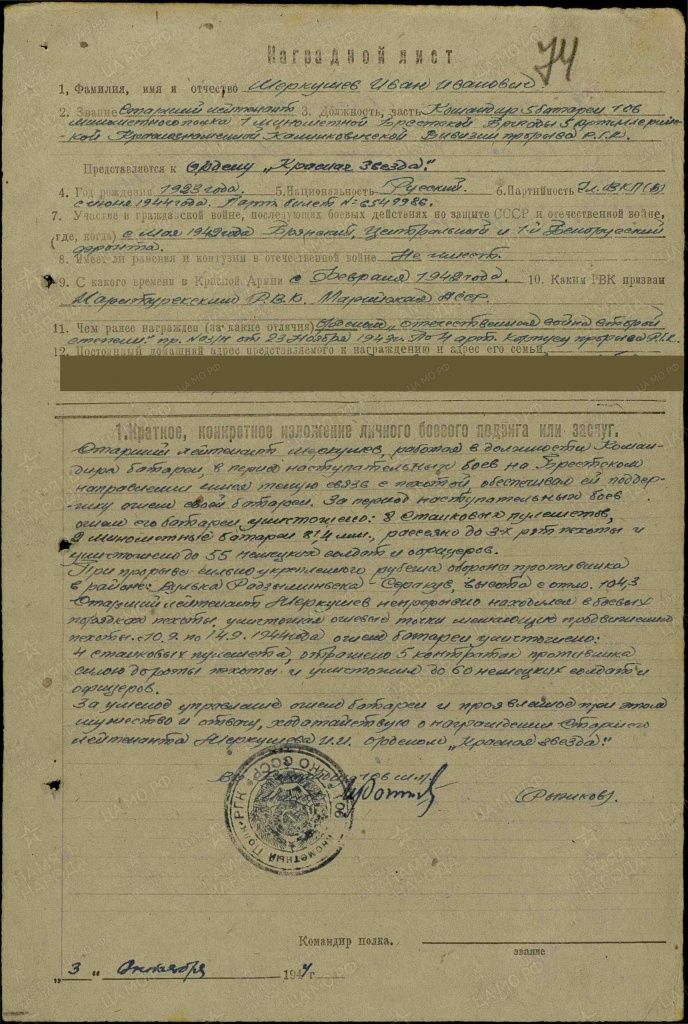 Наградной лист
74
1, Фамилия, имя и отчество Меркушев Иван Иванович
2. Звание Старший лейтенант 3. Должность, часть Командир 5 батареи
минометного полка 1 минометной Брестской Бригады 5 Артиллерийс-
кой Краснознаменной Калинковичской Дивизии прорыва Р.Г.К.
Представляется к Ордену „Красная Звезда."
4. Год рождения 1923 года. 5. Национальность Русский. 6. Партийность Чл. ВКП(б)
с июня 1944 года. Парт. билет № 6549986.
7. Участие в гражданской войне, последующих боевых действиях по защите СССР и отечественной войне,
(где, когда) с мая 1942 года Брянский, Центральный и 1й Белорусский
фронта.
8. Имеет ли ранения и контузии в отечественной войне Не имеет.
9. С какого времени в Красной Армии с Февраля 1942 года. 10. Каким РВК призван
Маритурекским Р.В.К. Марийская АССР.
11. Чем ранее награжден (за какие отличия) Орденом „Отечественная война второй
степени" пр. № 03/н от 23 Ноября 1943 г. По 4 арт. корпусу прорыва Р.Г.К.
12. Постоянный домашний адрес представляемого к награждению и адрес его семьи
1. Краткое, конкретное изложение личного боевого подвига или заслуг.
Старший лейтенант Меркушев, работая в должности Коман-
дира батареи, в период наступательных боев на Брестском
направлении имел тесную связь с пехотой, обеспечивал ей поддер-
жку огнем своей батареи. За период наступательных боев
огнем его батареи уничтожено: 8 станковых пулеметов,
2 минометные батареи 81,4 мм., рассеяно до 3-х рот пехоты и
уничтожено до 55 немецких солдат и офицеров.
При прорыве сильно укрепленного рубежа обороны противника
в районе: Вулька Радзыминьска - Серакув, высота с отм. 104,3
Старший лейтенант Меркушев непрерывно находился в боевых
порядках пехоты, уничтожая огневые точки мешающие продвижению
пехоты. с 10.9. по 14.9. 1944 года огнем батареи уничтожено:
4 станковых пулемета, отражено 5 контратак противника
силою до роты пехоты и уничтожил до 60 немецких солдат и
офицеров.
За умелое управление огнем батареи и проявленное при этом
мужество и отвагу, ходатайствую о награждении Старшего
лейтенанта Меркушева И.И. орденом „Красная звезда."
Командир полка.
звание
„3" Октября 1944 г